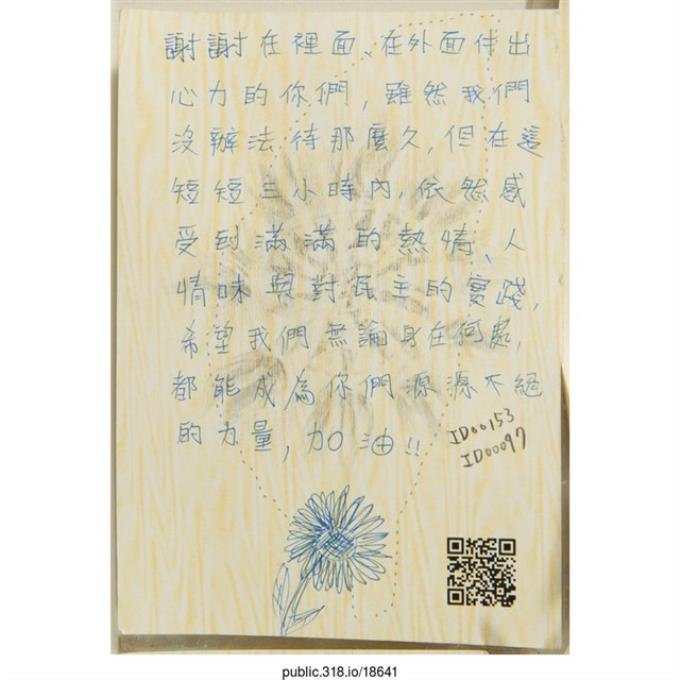 謝謝在裡面、在外面付出
心力的你們，雖然我們
沒辦法待那麼久，但在這
短短三小時內，依然感
受到滿滿的熱情、人
情味與對民主的實踐，
希望我們無論身在何處，
都能成為你們源源不絕
的力量，加油!!
ID00153
ID00097
public.318.io/18641